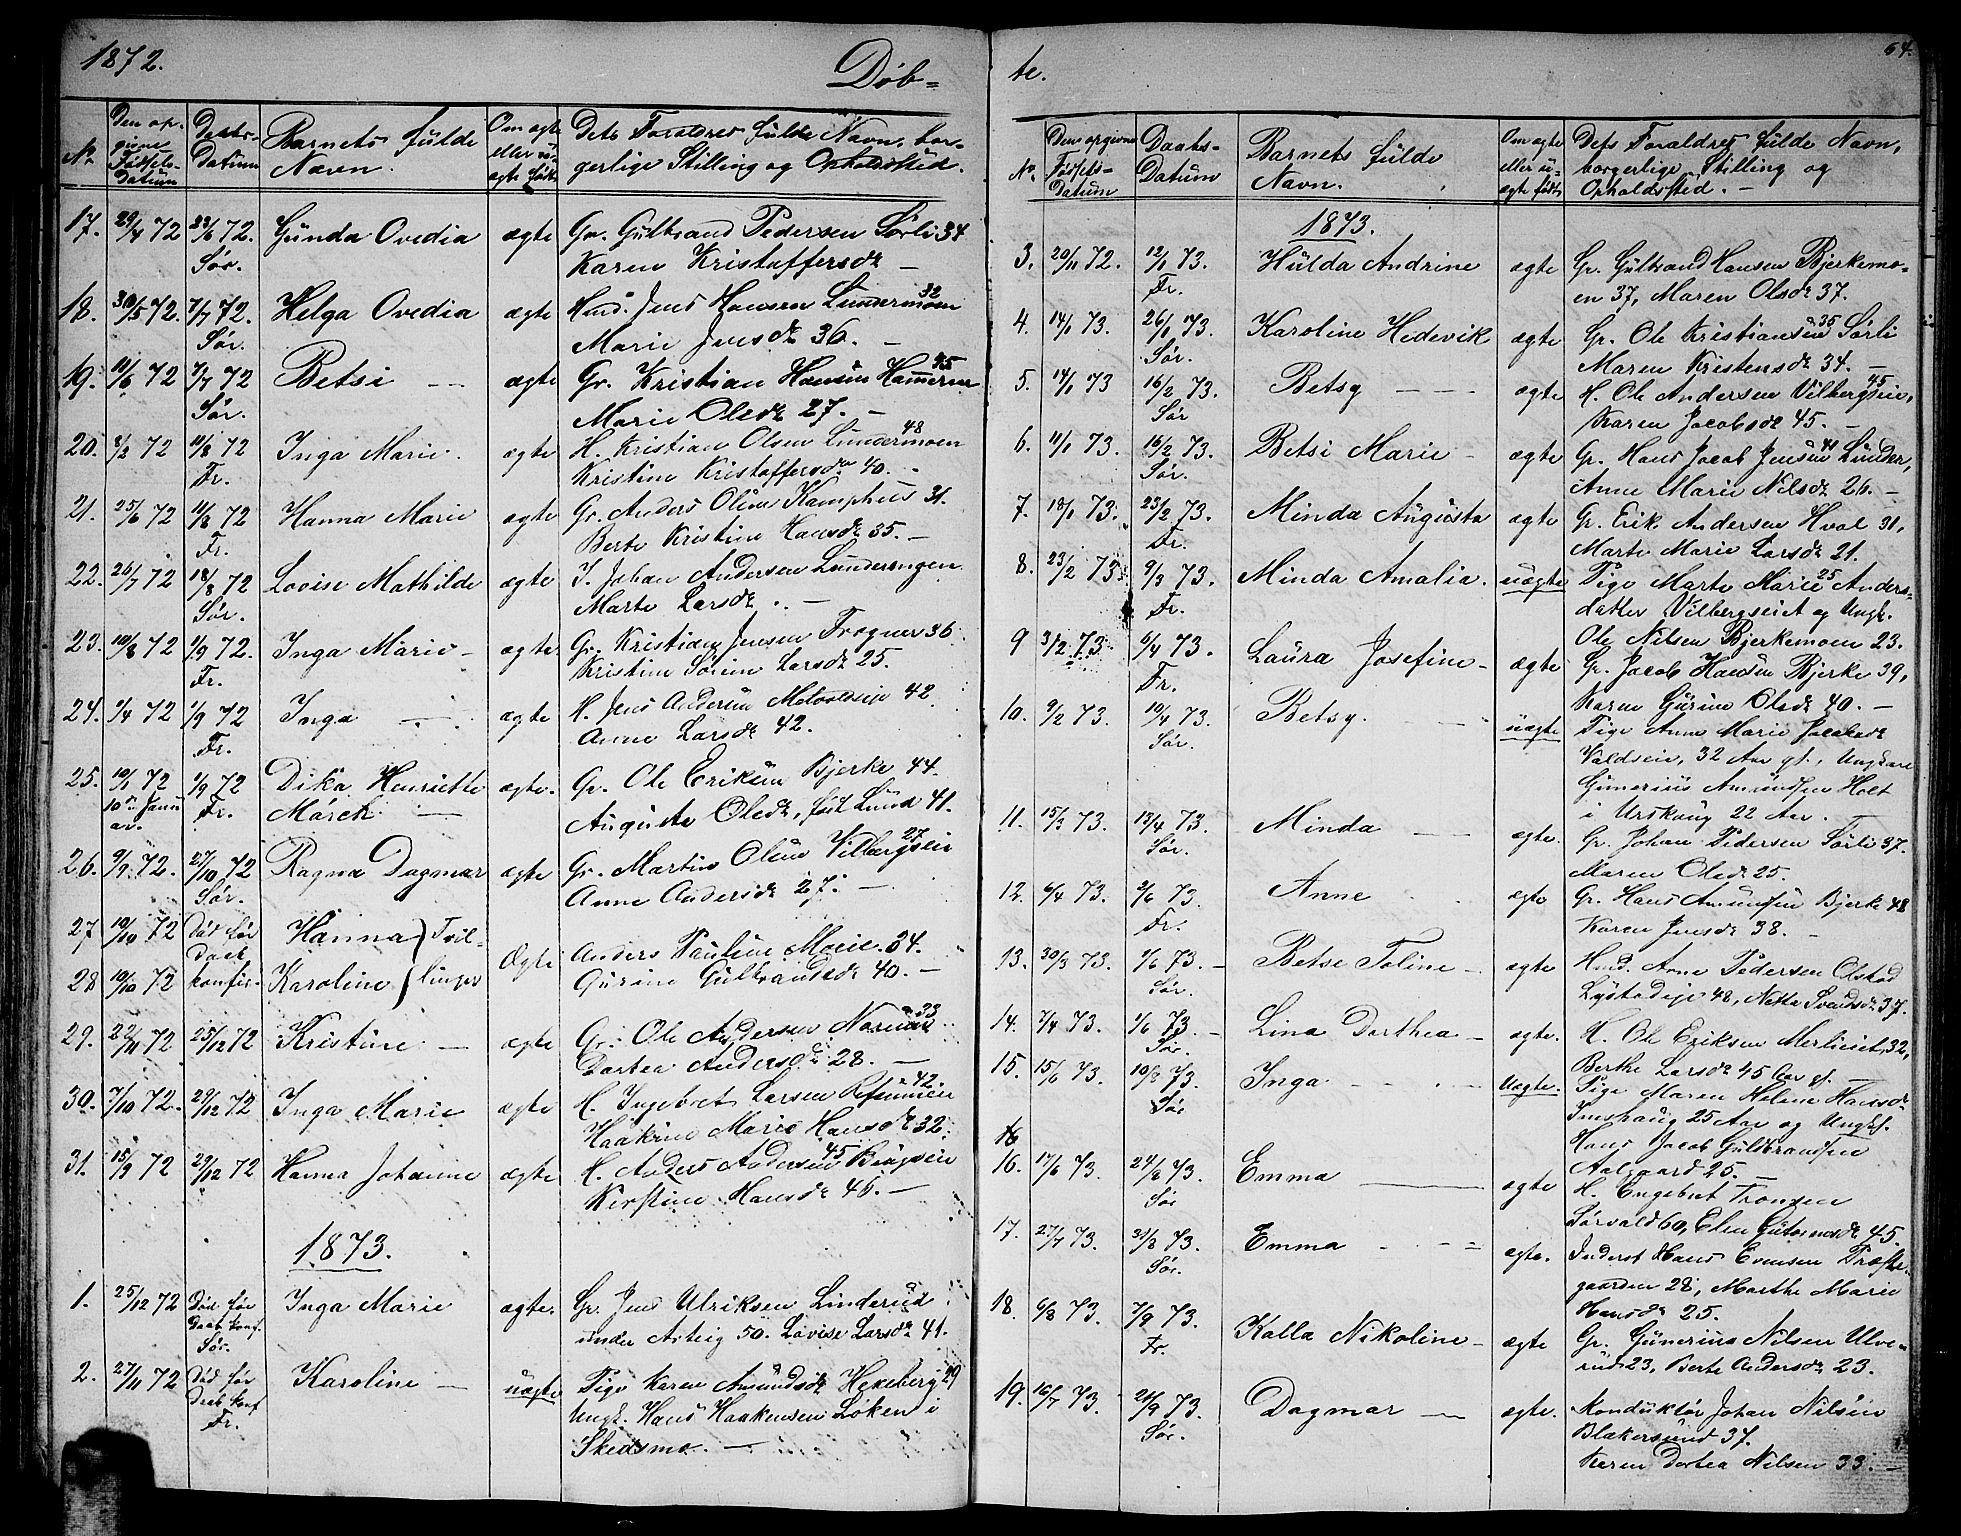 1872.
Døb-
No
Den op-
givne
Fødsels-
Datum
Daabs-
Datum
Barnets fulde
Navn.
Om ægte
eller u-
ægte født
Dets Forældres fulde Navn, bor-
gerlige Stilling og Opholdssted.
17. 29/4 72 23/6 72. Gunda Ovedia ægte Gr. Gulbrand Pedersen Sørli 34
Sør. Karen Kristoffersdr —
18. 30/5 72. 7/7 72. Helga Ovedia ægte Husm. Jens Hansen Lundermoen 32
Sør. Marie Jensdr 36. —
19. 11/6 72 7/7 72 Betsi — ægte Gr. Kristian Hansen Hammeren 45
Sør. Marie Olsdr 27. —
20. 2/2 72 11/8 72 Inga Marie. ægte H. Kristian Olsen Lundermoen 48
Fr. Kristine Kristoffersdr 40. -
21. 25/6 72 11/8 72 Hanna Marie ægte Gr. Anders Olsen Kamphus 31.
Fr. Berte Kristine Hansdr 35. —
22. 26/7 72 18/8 72 Lovise Mathilde ægte I. Johan Andersen Lunderengen
Sør. Marte Larsdr .. —
23. 10/8 72 1/9 72. Inga Marie - ægte. Gr. Kristian Jensen Frogner 36
Fr. Kristine Sørine Larsdr 25.
24. 1/4 72 1/9 72 Inga — ægte H. Jens Andersen 42
Fr. Anne Larsdr 42.
25. 10/1 72 1/9 72 Dika Henriette ægte. Gr. Ole Eriksen Bjerke 44.
10de Janu
ar. Fr. Märch. — Auguste Olsdr, født Lund 41.
26. 9/9 72. 27/10 72 Ragna Dagmar ægte Gr. Martin Olsen Vilbergseie 27
Sør. Anne Andersdr 27. —
27 19/10 72 Død før Hanna } Tvil- Ægte Anders Pauline Moeie. 34.
Daab
28 19/10 72 konfir- Karoline } linger Gurine Gulbrandsdr 40. —
29. 22/11 72 25/12 72 Kristine. — ægte Gr. Ole Andersen 33
Dortea Andersdr 28. —
30. 7/10 72. 29/12 72 Inga Marie ægte H. Ingebret Larsen 42.
Haakrine Marie Hansdr 32.
31. 15/9 72 29/12 72 Hanna Johanne ægte H. Anders Andersen 45
Kirstine Hansdr 46. —
1873.
1. 25/12 72 Død før Inga Marie ægte. Gr. Jens Ulriksen Linderud
Daab konf.
Sør. under Asteig 50. Lovise Larsdr 41.
2. 27/11 72 Død før Karoline — uægte Pige Karen Amundsdr Hexeberg 29
Daab konf
Fr. Ungk. Hans Haakensen Løken i
Skedsmo. —
64.
te.
No.
Den opgivne
Fødsels-
Datum
Daabs-
Datum
Barnets fulde
Navn.
Om ægte
eller u-
ægte født
Dets Forældres fulde Navn,
borgerlige Stilling og
Opholdssted. —
1873.
3. 20/11 72. 12/1 73. Hulda Andrine ægte Gr. Gulbrand Hansen Bjerkemo-
Fr. en 37, Maren Olsdr 37.
4. 14/1 73. 26/1 73. Karoline Hedevik ægte Gr. Ole Kristiansen 35 Sørli
Sør. Maren Kristensdr 34. —
5. 14/1 73 16/2 73. Betsy — — ægte H. Ole Andersen Vilbergseie, 45
Sør Karen Jacobsdr 45. —
6. 11/1 73. 16/2 73. Betsi Marie - ægte Gr. Hans Jacob Jensen 41 Lunder,
Sør. Anne Marie Nilsdr 26. —
7. 18/1 73. 23/2 73. Minda Augusta ægte Gr. Erik Andersen Hval 31,
Fr. Marte Marie Larsdr 21.
8. 23/2 73. 9/3 73. Minda Amalia. uægte Pige Marte Marie 25 Anders-
Fr. datter Vilbergseiet og Ungk.
Ole Nilsen Bjerkemoen 23.
9 3/2 73. 6/4 73. Laura Josefine - ægte Gr. Jacob Hansen Bjerke 39,
Fr. Karen Gurine Olsdr 40. —
10. 9/2 73. 10/4 73. Betsy. — uægte Pige Anne Marie Jacobsdr
Sør. Valdseie, 32 Aar gl., Ungkarl
Gunerius Amundsen Holt
i Urskoug 22 Aar. —
11. 15/3 73. 13/4 73. Minda — ægte. Gr. Johan Pedersen Sørli 37.
Sør. Maren Olsdr 25.
12. 6/4 73. 2/6 73. Anne ægte Gr. Hans Amundsen Bjerke 48
Fr. Karen Jensdr 38. —
13. 30/3 73. 1/6 73. Betse Toline — ægte Husm. Arne Pedersen Olstad
Sør. 48, 37.
14. 7/4 73. 1/6 73. Lina Dorthea — ægte. H. Ole Eriksen 32,
Sør. Berthe Larsdr 45 Aar gl. —
15. 15/6 73. 10/8 73. Inga — Uægte. Pige Maren Helene Hansdr
Sør 25 Aar og Ungk.
Hans Jacob Guldbrandsen
Aalgaard 25. —
16
16. 17/6 73. 24/8 73. Emma — ægte H. Engebret Tronsen
Sør Sørvald 60, Elen Gutormsdr 45.
17. 27/7 73. 31/8 73. Emma - - = ægte. Inderst Hans Evensen Præste-
Sør. gaarden 28, Marthe Marie
Hansdr 25.
18. 6/8 73. 7/9 73. Kalla Nikoline — ægte Gr. Gunerius Nilsen Ulve-
Fr. rud 23, Berte Andersdr 23.
19. 16/7 73. 21/9 73. Dagmar — ægte. Konduktør Johan Nilsen
Sør. Blakersund 37.
Karen Dortea Nilsen 33. —